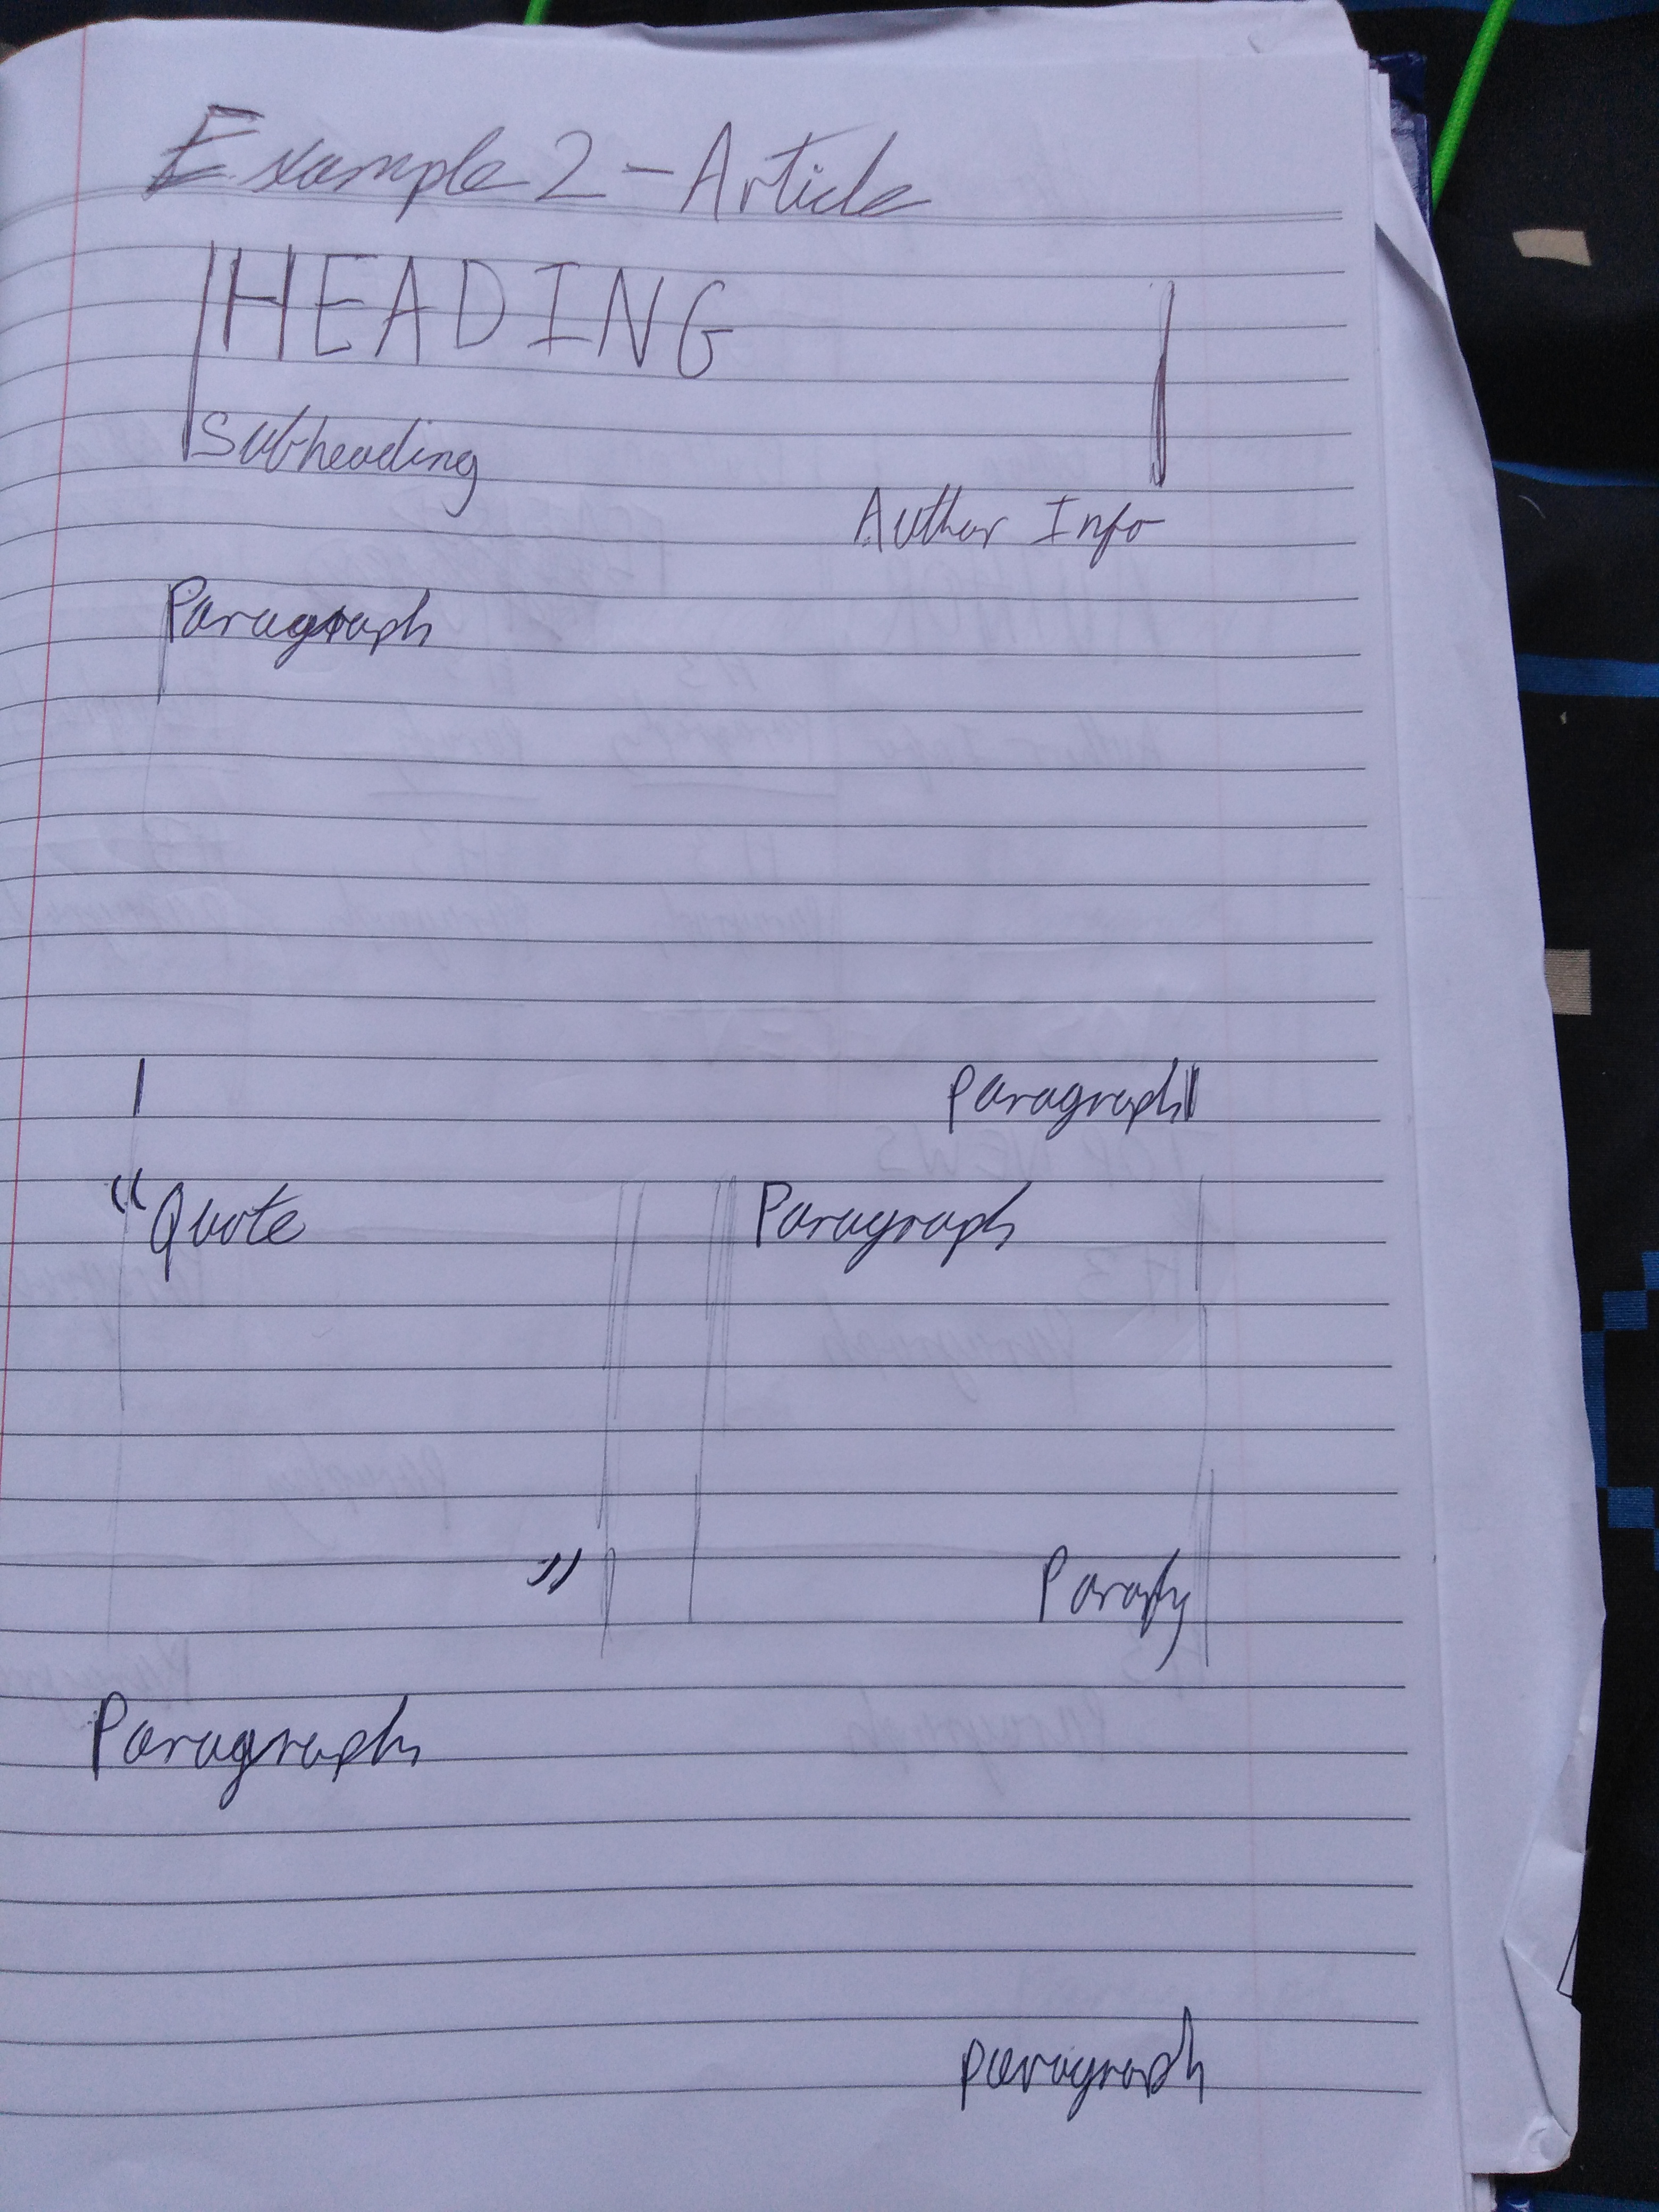 Example 2 - Article
HEADING
Subheading
Author Info
Paragraph
paragraph
"Quote
Paragraph
"
Paragraph
paragraph